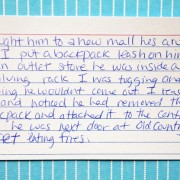 ught him to a new mall hes are
I put a backpack leash on him
n outlet store he was inside a
lving rack I was tugging an
ing he wouldnt come out I rea
and noticed he had removed th
ackpack and attached it to the cent
he was next door at Old Countr
eating fries.